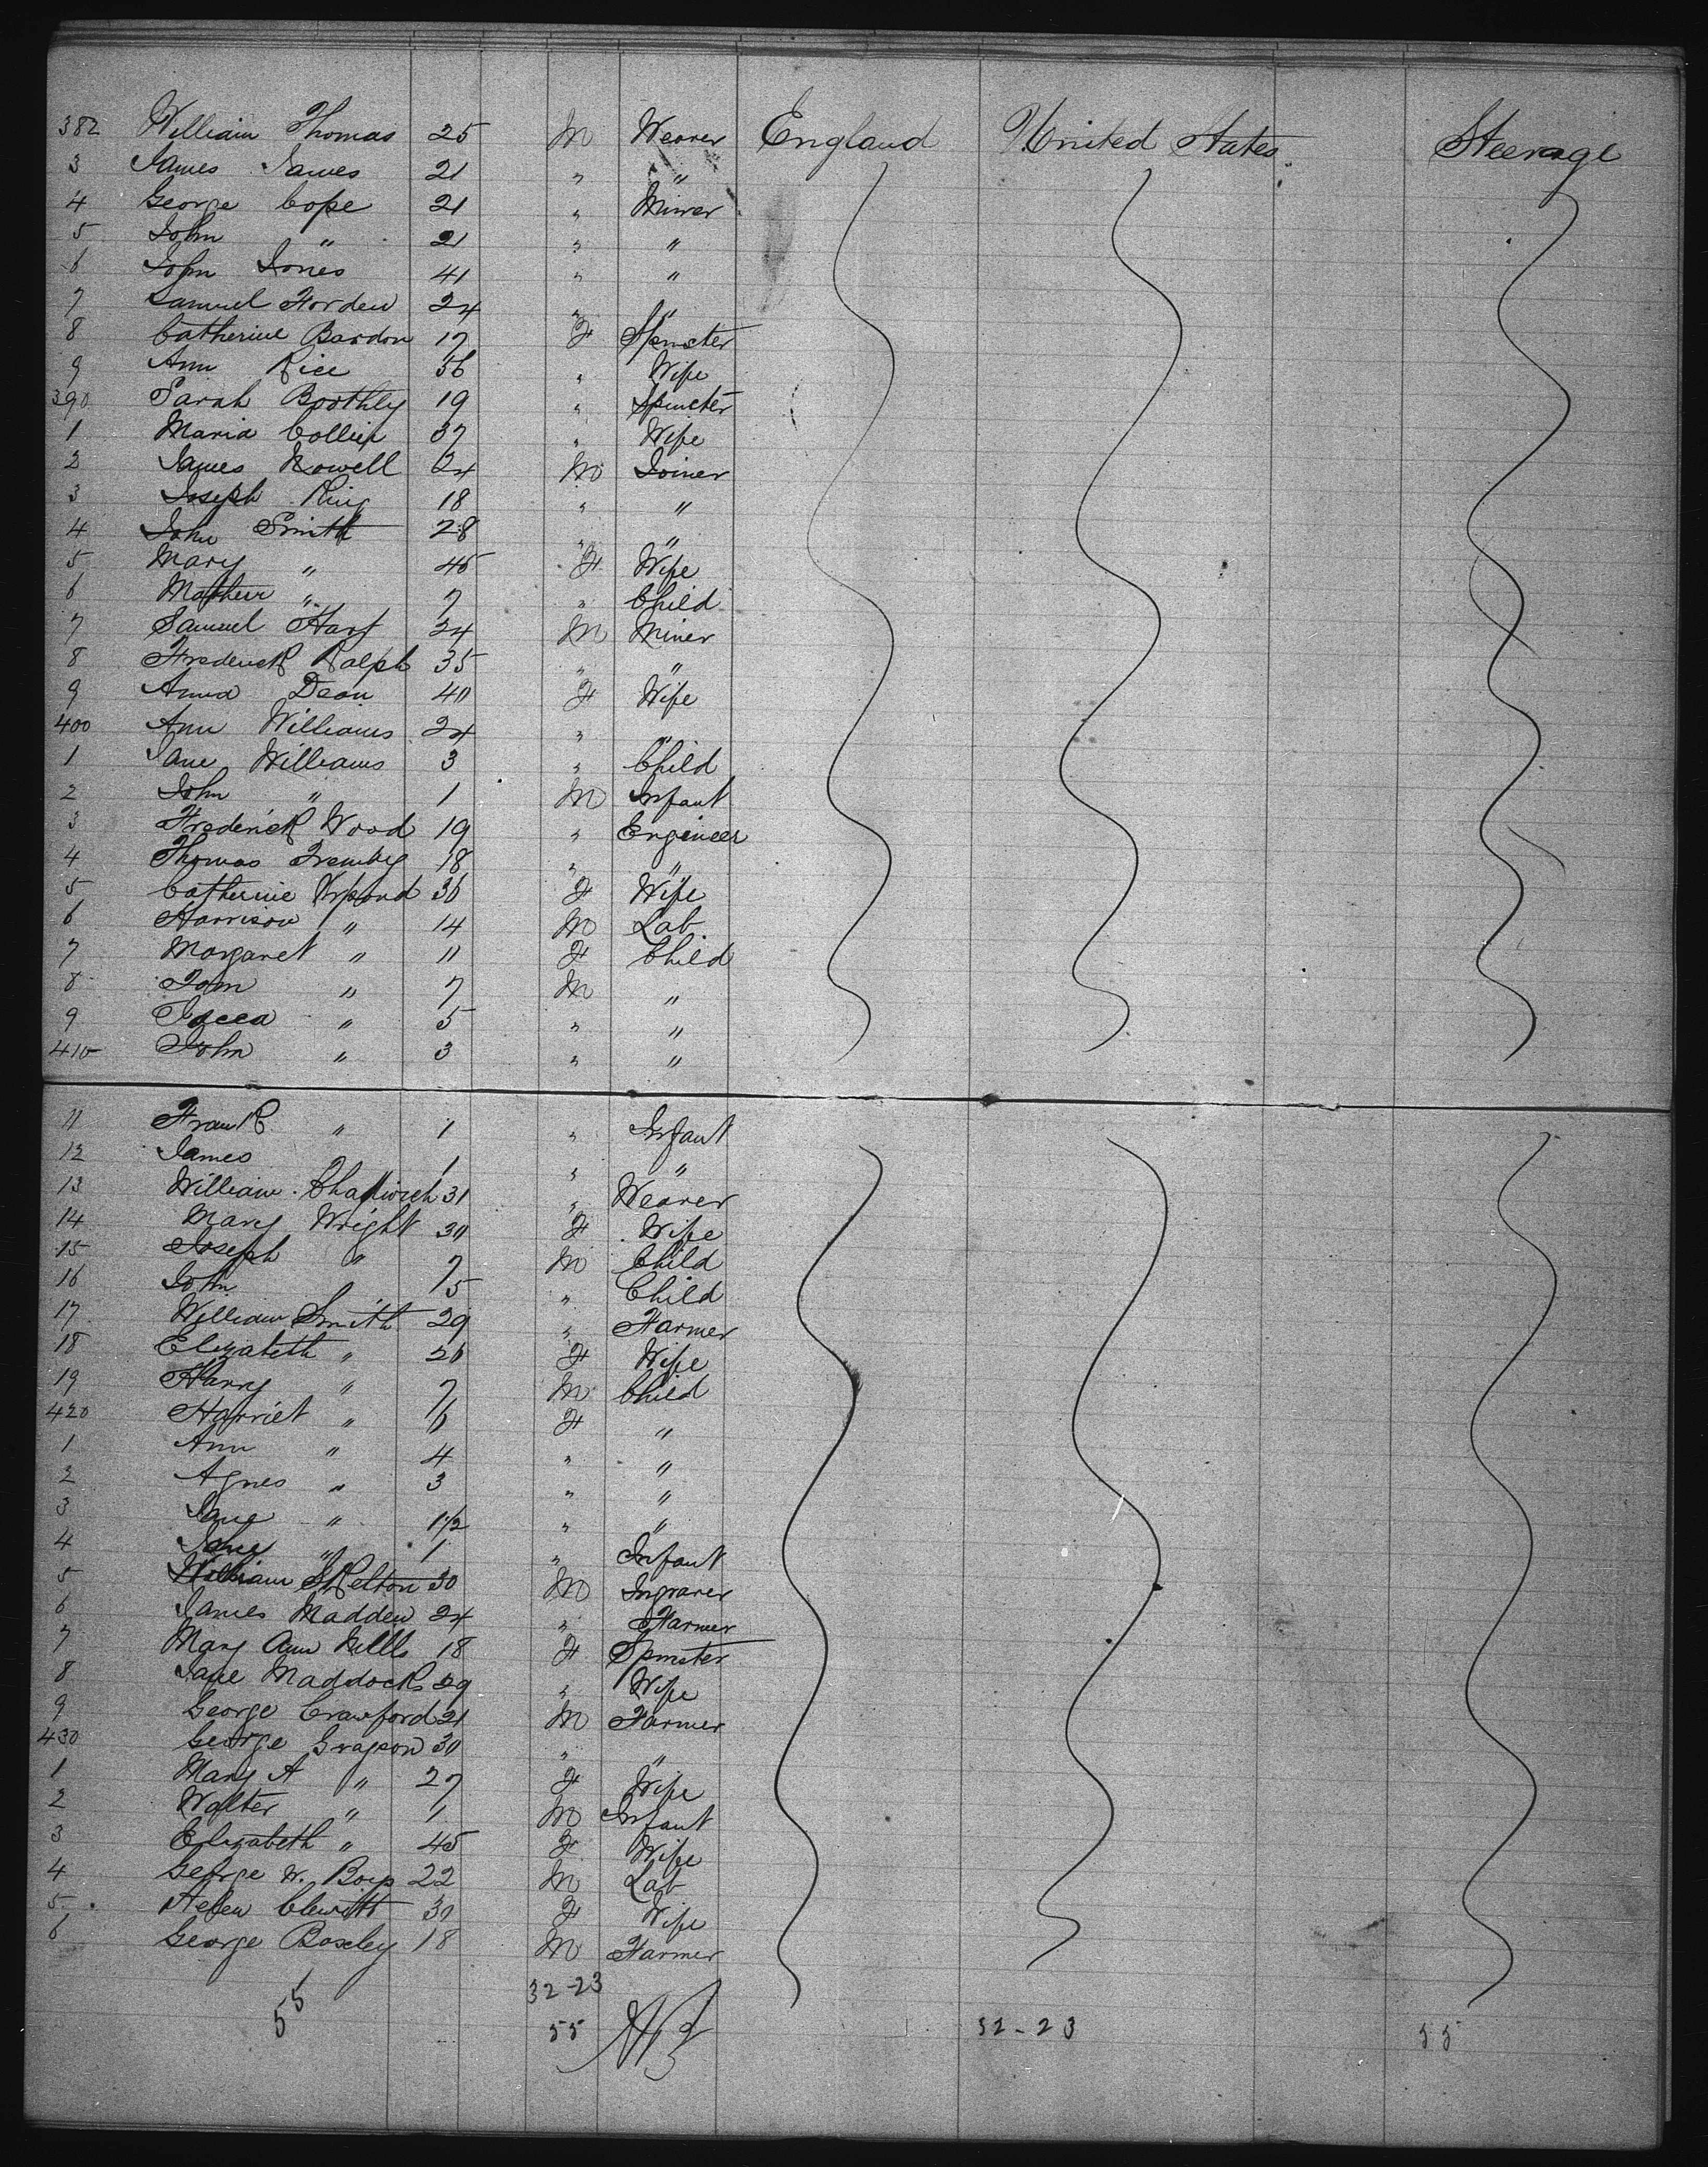 382 William Thomas 25 M Weaver England United States Steerage
3 James James 21 " "
4 George Cope 21 " Miner
5 John " 21 " "
6 John Jones 41 " "
7 Samuel Forden 24 " "
8 Catherine Bardon 17 F Spinster
9 Ann Rice 36 " Wife
390 Sarah Boothly 19 " Spinster
1 Maria 37 " Wife
2 James Rowell 24 M Joiner
3 Joseph King 18 " "
4 John Smith 28 " "
5 Mary " 45 F Wife
6 " 7 " Child
7 Samuel Hart 34 M Miner
8 Frederick Ralph 35 " "
9 Anna Dean 40 F Wife
400 Ann Williams 24 " "
1 Jane Williams 3 " Child
2 John " 1 M Infant
3 Frederick Wood 19 " Engineer
4 Thomas 18 " "
5 Catherine 36 F Wife
6 Harrison " 14 M Lab
7 Margaret " 11 F Child
8 Tom " 7 M "
9 " 5 " "
410 John " 3 " "
11 Frank " 1 " Infant
12 James 1 " "
13 William Chadwick 31 " Weaver
14 Mary Wright 30 F Wife
15 Joseph " 7 M Child
16 John 5 " Child
17 William Smith 29 " Farmer
18 Elizabeth " 26 F Wife
19 Harry " 7 M Child
420 Harriet " 6 F "
1 Ann " 4 " "
2 Agnes " 3 " "
3 Jane " 1 1/2 " "
4 " 1 " Infant
5 William Skelton 30 M Ingraver
6 James Madden 24 " Farmer
7 Mary Ann Mills 18 F Spinster
8 Jane Maddocks 29 " Wife
9 George Crawford 21 M Farmer
430 George Grayson 30 " "
1 Mary A " 27 F Wife
2 Walter " 1 M Infant
3 Elizabeth " 45 F Wife
4 George W. 22 M Lab
5 Helen Clewitt 30 F Wife
6 George Baxley 18 M Farmer
32-23
55 55 32-23 55